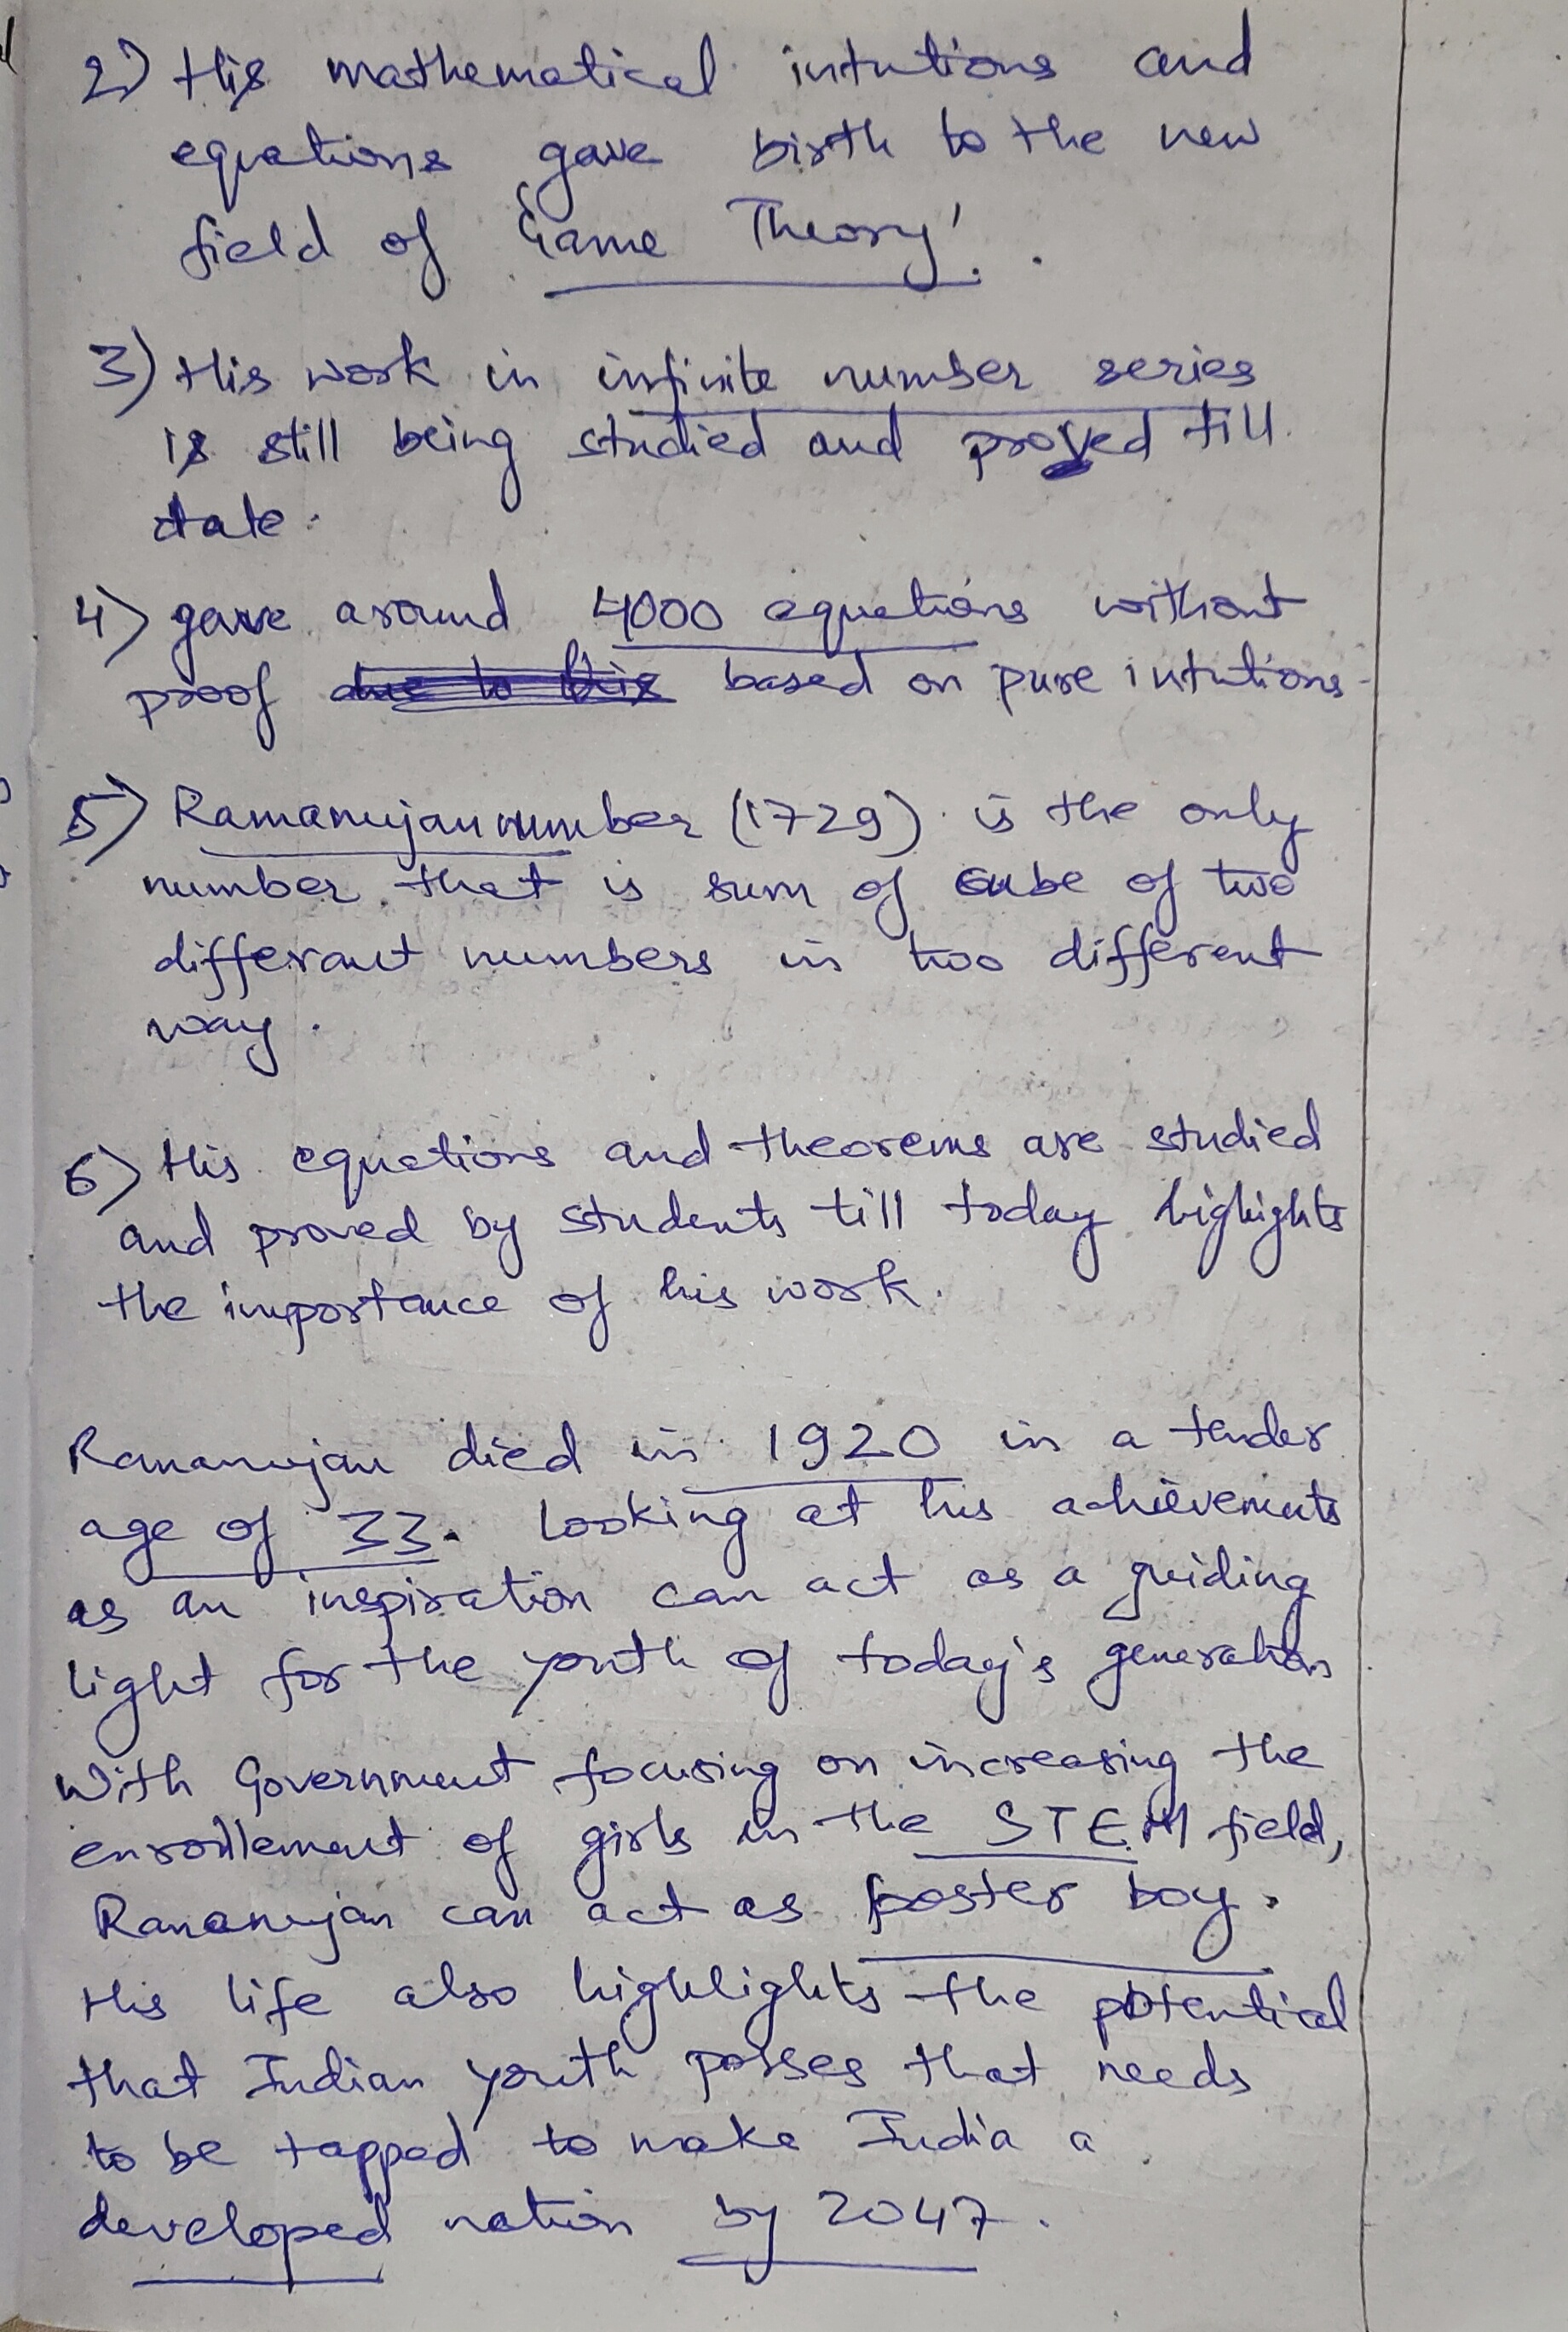 2) His mathematical intutions and
equations gave birth to the new
field of 'Game Theory'.
3) His work in infinite number series
is still being studied and proved till
date.
4) gave around 4000 equations without
proof due to his based on pure intutions
5) Ramanujan number (1729) is the only
number that is sum of cube of two
differant numbers in two different
way.
6) His equations and theorems are studied
and proved by students till today highights
the importance of his work.
Ramanujan died in 1920 in a tender
age of 33. Looking at his achievements
as an inspiration can act as a guiding
light for the youth of today's generation
With Government focusing on increasing the
enrollement of girls in the STEM field,
Ramanujan can act as poster boy.
His life also highlights the potential
that Indian youth posses that needs
to be tapped to make India a
developed nation by 2047.